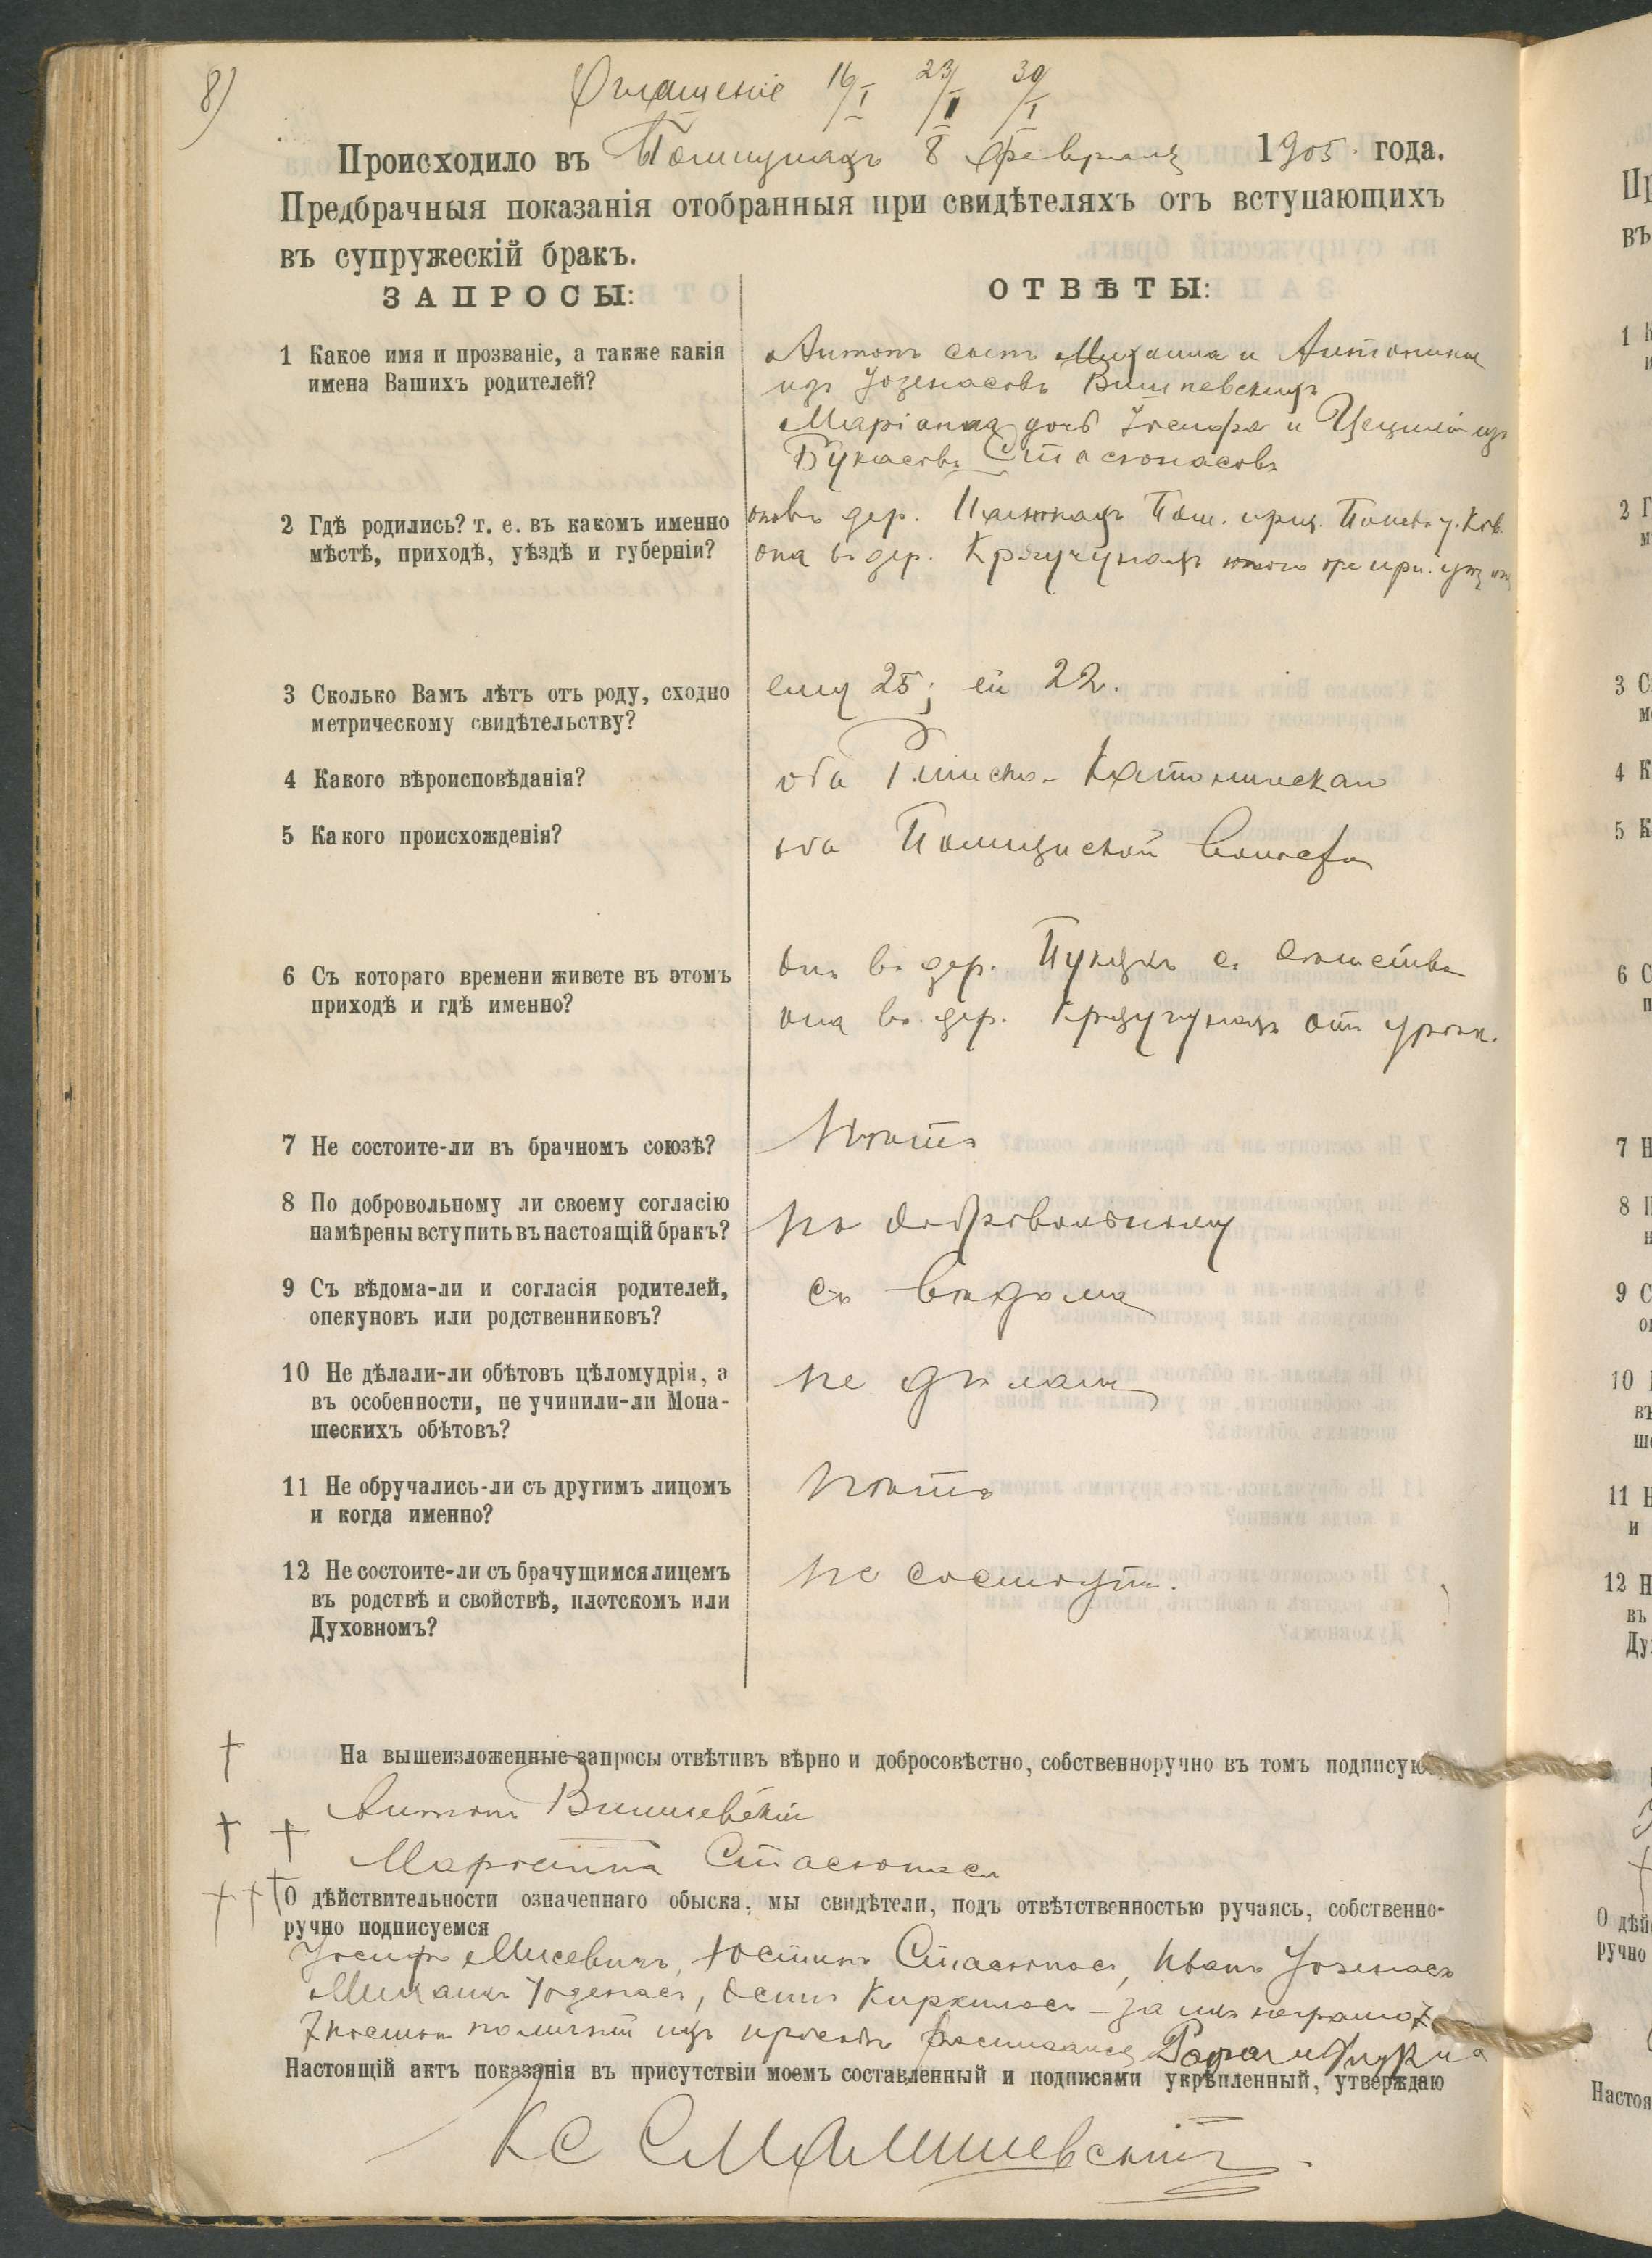 8)
Оглашеніе 16/I 23/I 30/I
Происходило въ 8 февраля 1905 года.
Предбрачныя показанія отобранныя при свидѣтеляхъ отъ вступающихъ
въ супружескій бракъ.
ЗАПРОСЫ:
ОТВѢТЫ:
1 Какое имя и прозваніе, а также какія
имена Вашихъ родителей?
Антонъ сынъ Михаила и Антонины
изъ Юзенасовъ Вишневскихъ
Маріанна дочь Іосифа и Цециліи изъ
Букасовъ Стасюнасовъ
2 Гдѣ родились? т. е. въ какомъ именно
мѣстѣ, приходѣ, уѣздѣ и губерніи?
онъ въ дер.
она въ дер.
3 Сколько Вамъ лѣтъ отъ роду, сходно
метрическому свидѣтельству?
ему 25; ей 22.
4 Какого вѣроисповѣданія?
оба Римско-Католическаго
5 Какого происхожденія?
оба волости
6 Съ котораго времени живете въ этомъ
приходѣ и гдѣ именно?
онъ въ дер. съ дѣтства
она въ дер. отъ урожд.
7 Не состоите-ли въ брачномъ союзѣ?
Нѣтъ
8 По добровольному ли своему согласію
намѣрены вступить въ настоящій бракъ?
по добровольному
9 Съ вѣдома-ли и согласія родителей,
опекуновъ или родственниковъ?
съ вѣдома
10 Не дѣлали-ли обѣтовъ цѣломудрія, а
въ особенности, не учинили-ли Мона-
шескихъ обѣтовъ?
не дѣлали
11 Не обручались-ли съ другимъ лицомъ
и когда именно?
нѣтъ
12 Не состоите-ли съ брачущимся лицемъ
въ родствѣ и свойствѣ, плотскомъ или
Духовномъ?
не состоутъ.
На вышеизложенные запросы отвѣтивъ вѣрно и добросовѣстно, собственноручно въ томъ подписую
Антонъ Вишневскій
Маріанна Стасюнасъ
О дѣйствительности означеннаго обыска, мы свидѣтели, подъ отвѣтственностью ручаясь, собственно-
ручно подписуемся
Іосифъ Мисевичъ, Юстинъ Стасюнасъ, Иванъ Юзенасъ
Михаилъ Юзенасъ, Осипъ Киркиласъ – за ихъ неграмот
ихъ просьбѣ росписался
Настоящій актъ показанія въ присутствіи моемъ составленный и подписями укрѣпленный, утверждаю